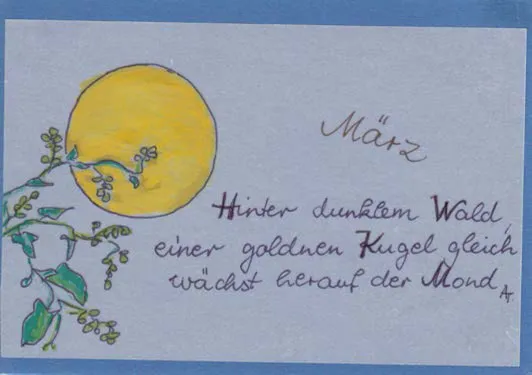 März
Hinter dunklem Wald,
einer goldnen Kugel gleich
wächst herauf der Mond